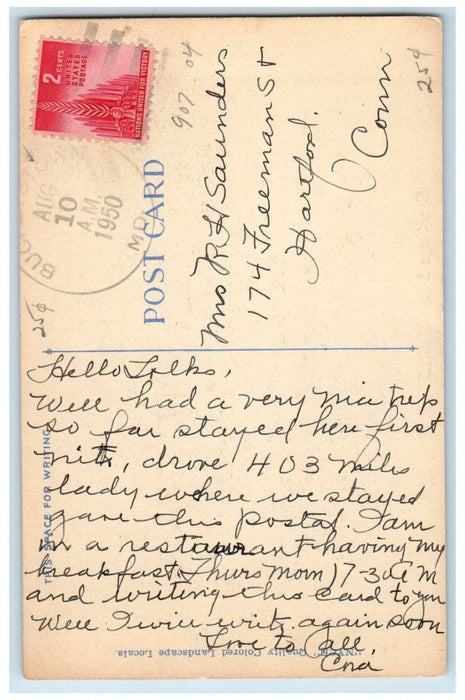 2 CENTS
UNITED
STATES
POSTAGE
NATIONS UNITED FOR VICTORY
AUG
10
A.M.
1950
MD.
907 04
25¢
25¢
POST CARD
Mrs R H Saunders
174 Freeman St
Hartford,
Conn
THIS SPACE FOR WRITING
Hello Folks,
Well had a very nice trip
so far stayed here first
nite, drove 403 miles
lady where we stayed
gave this postal. I am
in a restaurant having my
breakfast Thurs Morn) 7-30 A M
and writing this card to you
Well I will write again soon
Love to all,
Cora
Quality Colored Landscape Locals.